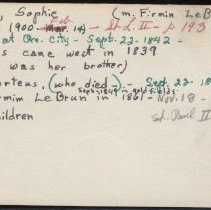 , Sophie (m. Firmin LeB
Feb
1900 - Mar. 14) - St. L. II - p 193
at Ore. City - Sept. 22 - 1842 -
s came west in 1839
was her brother)
rteus. (who died - Sept. 22 - 18
Sept. 1849 in gold fields
rmin LeBrun in 1861 - Nov. 18 -
St. Paul II
hildren